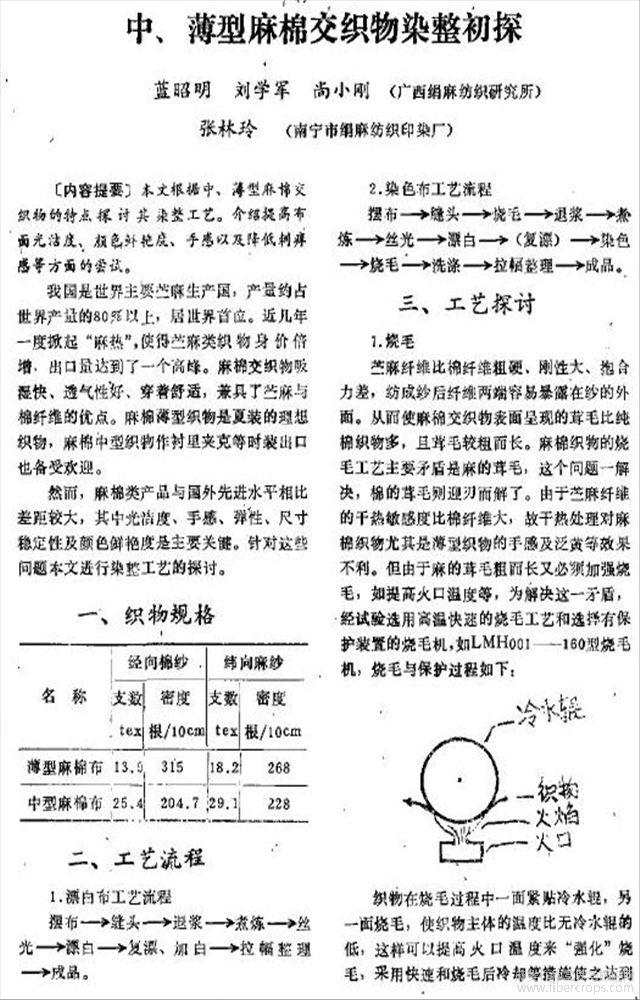 中、薄型麻棉交织物染整初探
蓝昭明 刘学军 尚小刚 (广西绢麻纺织研究所)
张林玲 (南宁市绢麻纺织印染厂)
〔内容提要〕本文根据中、薄型麻棉交
织物的特点探讨其染整工艺。介绍提高布
面光洁度、颜色鲜艳度、手感以及降低刺痒
感等方面的尝试。
我国是世界主要苎麻生产国,产量约占
世界产量的80%以上,居世界首位。近几年
一度掀起“麻热”,使得苎麻类织物身价倍
增,出口量达到了一个高峰。麻棉交织物吸
湿快、透气性好、穿着舒适,兼具了苎麻与
棉纤维的优点。麻棉薄型织物是夏装的理想
织物,麻棉中型织物作衬里夹克等时装出口
也备受欢迎。
然而,麻棉类产品与国外先进水平相比
差距较大,其中光洁度、手感、弹性、尺寸
稳定性及颜色鲜艳度是主要关键。针对这些
问题本文进行染整工艺的探讨。
一、织物规格
名 称 经向棉纱 纬向麻纱
支数 密度 支数 密度
tex 根/10cm tex 根/10cm
薄型麻棉布 13.9 315 18.2 268
中型麻棉布 25.4 204.7 29.1 228
二、工艺流程
1.漂白布工艺流程
摆布→缝头→退浆→煮炼→丝
光→漂白→复漂、加白→拉幅整理
→成品。
2.染色布工艺流程
摆布→缝头→烧毛→退浆→煮
炼→丝光→漂白→(复漂)→染色
→烧毛→洗涤→拉幅整理→成品。
三、工艺探讨
1.烧毛
苎麻纤维比棉纤维粗硬、刚性大、抱合
力差,纺成纱后纤维两端容易暴露在纱的外
面。从而使麻棉交织物表面呈现的茸毛比纯
棉织物多,且茸毛较粗而长。麻棉织物的烧
毛工艺主要矛盾是麻的茸毛,这个问题一解
决,棉的茸毛则迎刃而解了。由于苎麻纤维
的干热敏感度比棉纤维大,故干热处理对麻
棉织物尤其是薄型织物的手感及泛黄等效果
不利。但由于麻的茸毛粗而长又必须加强烧
毛,如提高火口温度等,为解决这一矛盾,
经试验选用高温快速的烧毛工艺和选择有保
护装置的烧毛机,如LMH001——160型烧毛
机,烧毛与保护过程如下:
冷水辊
织物
火焰
火口
织物在烧毛过程中一面紧贴冷水辊,另
一面烧毛,使织物主体的温度比无冷水辊的
低,这样可以提高火口温度来“强化”烧
毛,采用快速和烧毛后冷却等措施使之达到
www.fibercrops.com